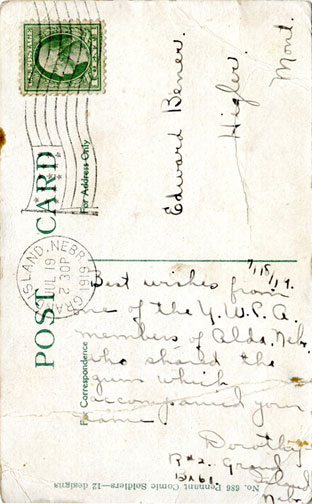 U.S. POSTAGE
POST CARD
For Address Only
GRAND ISLAND, NEBR.
JUL 19
2 30P
1919
Edward Bener.
Higler.
Mont.
For Correspondence
7/18/19.
Best wishes from
one of the Y.W.P.A.
members of Alda, Nebr.
who shared the
gum which
accompanied your
name.
Dorothy
R#2. Grand Island
Bx61. Nebr.
No. 686 Pennant Comic Soldiers—12 designs